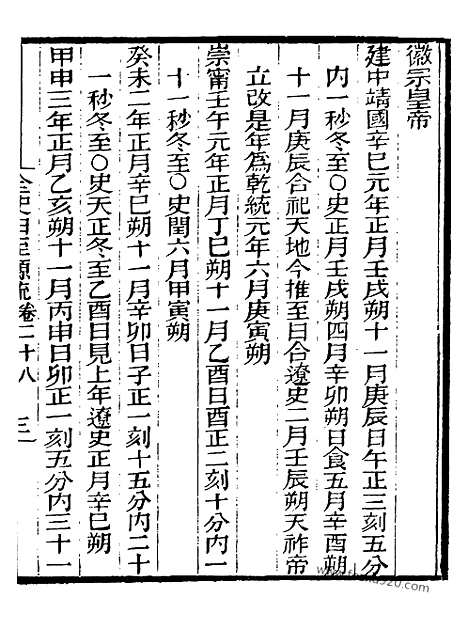 徽宗皇帝
建中靖國辛巳元年正月壬戌朔十一月庚辰日午正三刻五分
内一秒冬至○史正月壬戌朔四月辛卯朔日食五月辛酉朔
十一月庚辰合祀天地今推至日合遼史二月壬辰朔天祚帝
立改是年為乾統元年六月庚寅朔
崇甯壬午元年正月丁巳朔十一月乙酉日酉正二刻十分内一
十一秒冬至○史閏六月甲寅朔
癸未二年正月辛巳朔十一月辛卯日子正一刻十五分内二十
一秒冬至○史天正冬至乙酉日見上年遼史正月辛巳朔
甲申三年正月乙亥朔十一月丙申日卯正一刻五分内三十一
全史日至源流卷二十八 三